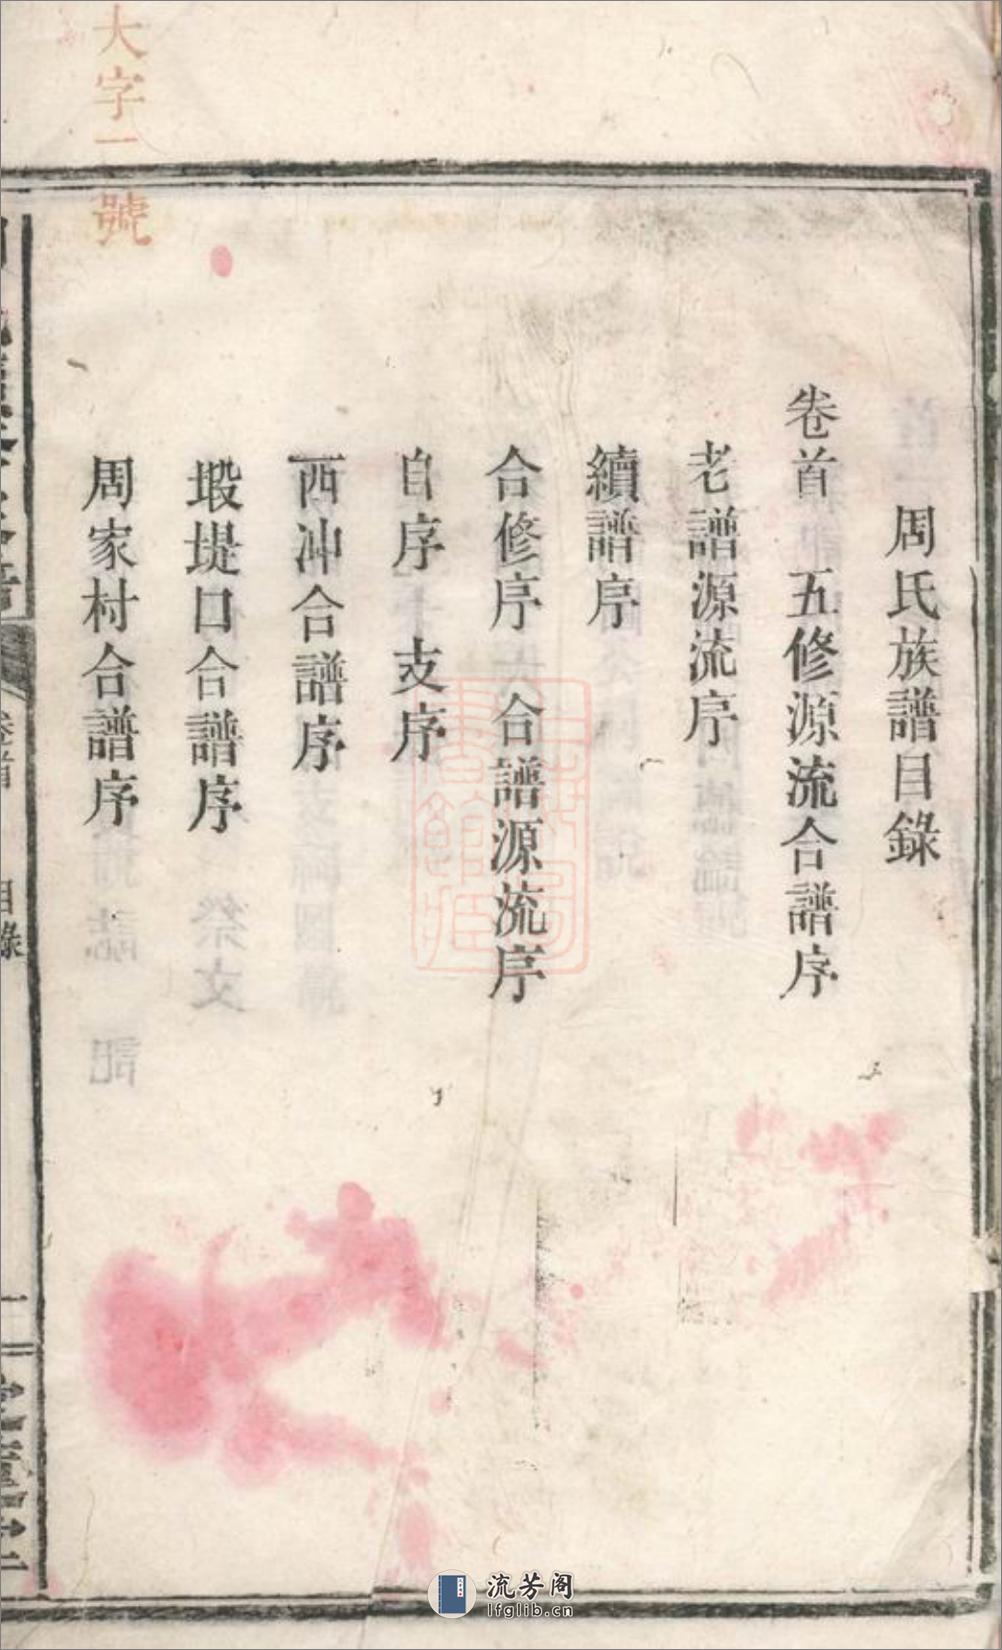 周氏族譜目錄
卷首 五修源流合譜序
老譜源流序
續譜序
合修序 合譜源流序
自序 支序
西冲合譜序
塅堤口合譜序
周家村合譜序
大字一號
卷首 目錄 一
流芳阁
lfglib.cn